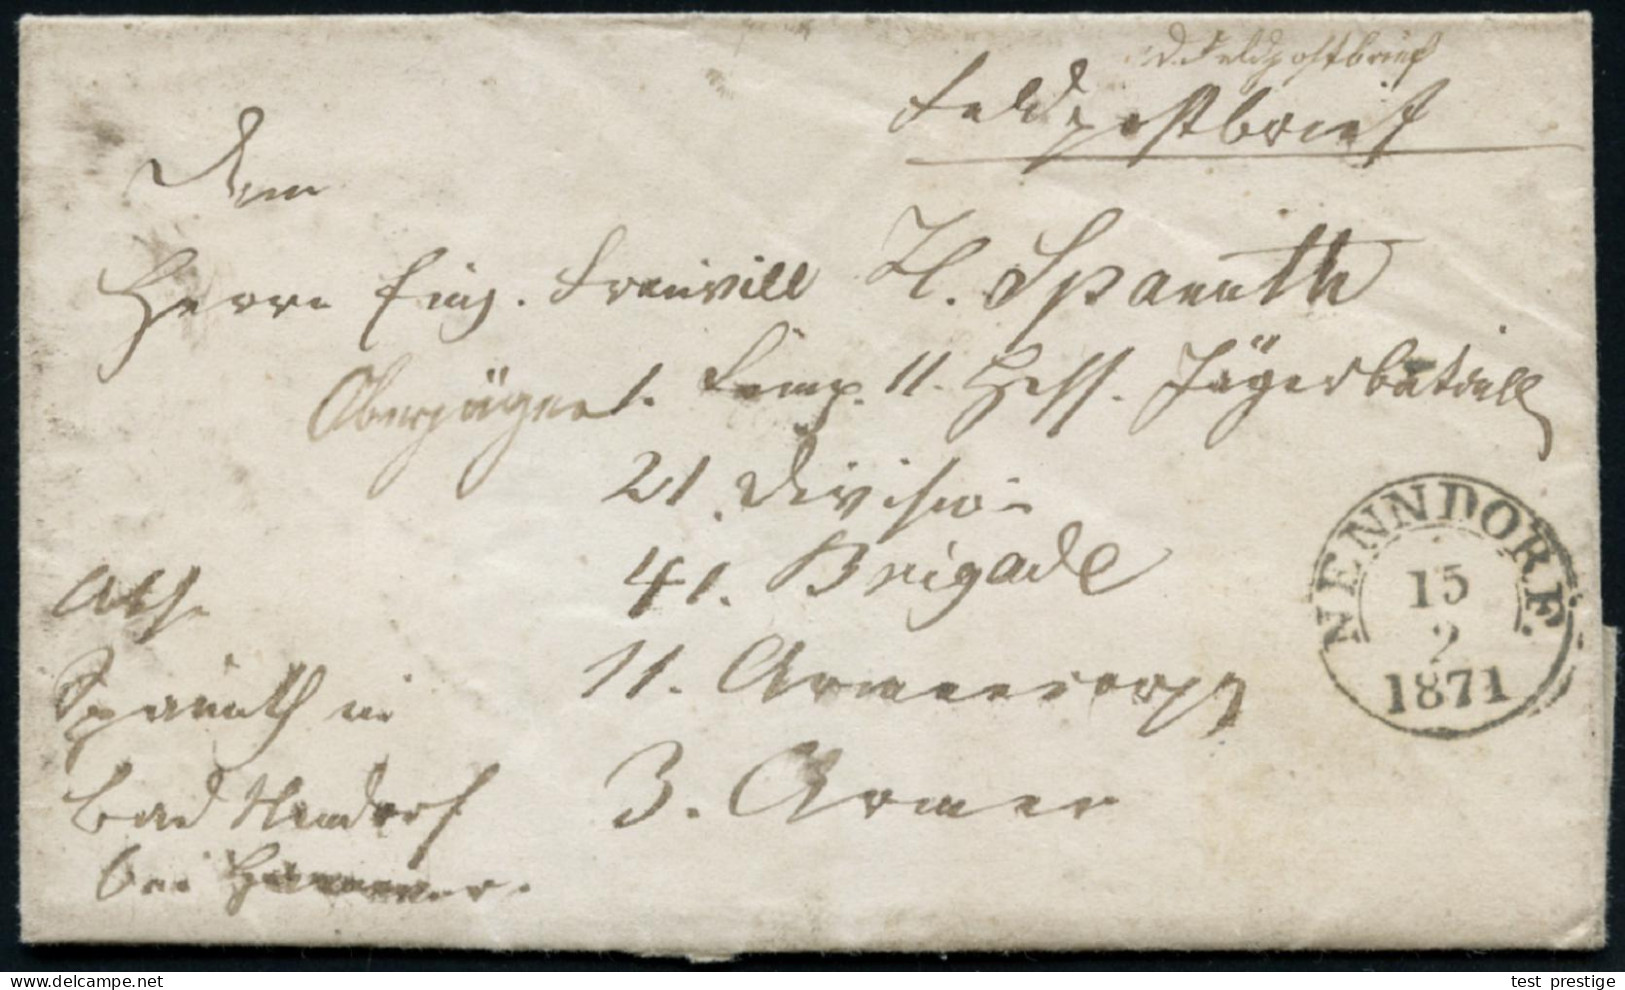 d. Feldpostbrief
Feldpostbrief
Dem
Herrn Einj. Freiwill H. Spanuth
Oberjäger 1. Comp. 11. Hess. Jägerbataill
21. Division
41. Brigade
11. Armeecorps
3. Armee
Abs.
Spanuth in
Bad Nendorf
bei Hannover.
NENNDORF.
15
2
1871
test prestige